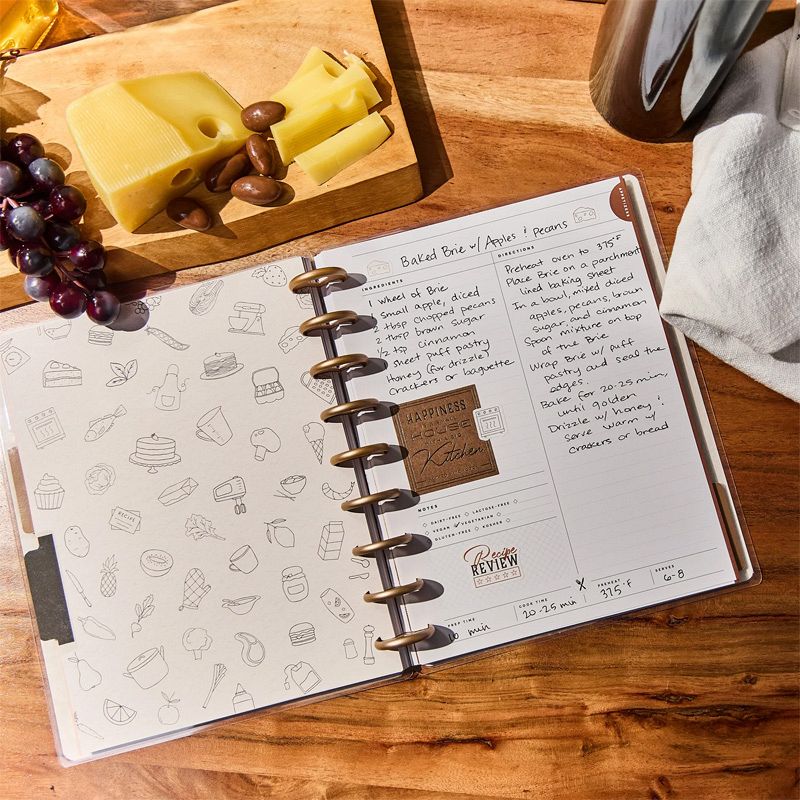 RECIPE
APPETIZERS
Baked Brie w/ Apples & Pecans
INGREDIENTS
1 wheel of Brie
1 small apple, diced
2 tbsp chopped pecans
2 tbsp brown sugar
1/2 tsp cinnamon
1 sheet puff pastry
Honey (for drizzle)
Crackers or baguette
HAPPINESS
HOUSE
Kitchen
NOTES
DAIRY-FREE LACTOSE-FREE
VEGAN VEGETARIAN
GLUTEN-FREE KOSHER
Recipe
REVIEW
DIRECTIONS
Preheat oven to 375°F
Place Brie on a parchment
lined baking sheet
In a bowl, mixed diced
apples, pecans, brown
sugar, and cinnamon
Spoon mixture on top
of the Brie
Wrap Brie w/ puff
pastry and seal the
edges.
Bake for 20-25 min,
until golden
Drizzle w/ honey &
serve warm w/
crackers or bread
PREP TIME
10 min
COOK TIME
20-25 min
PREHEAT
375°F
SERVES
6-8